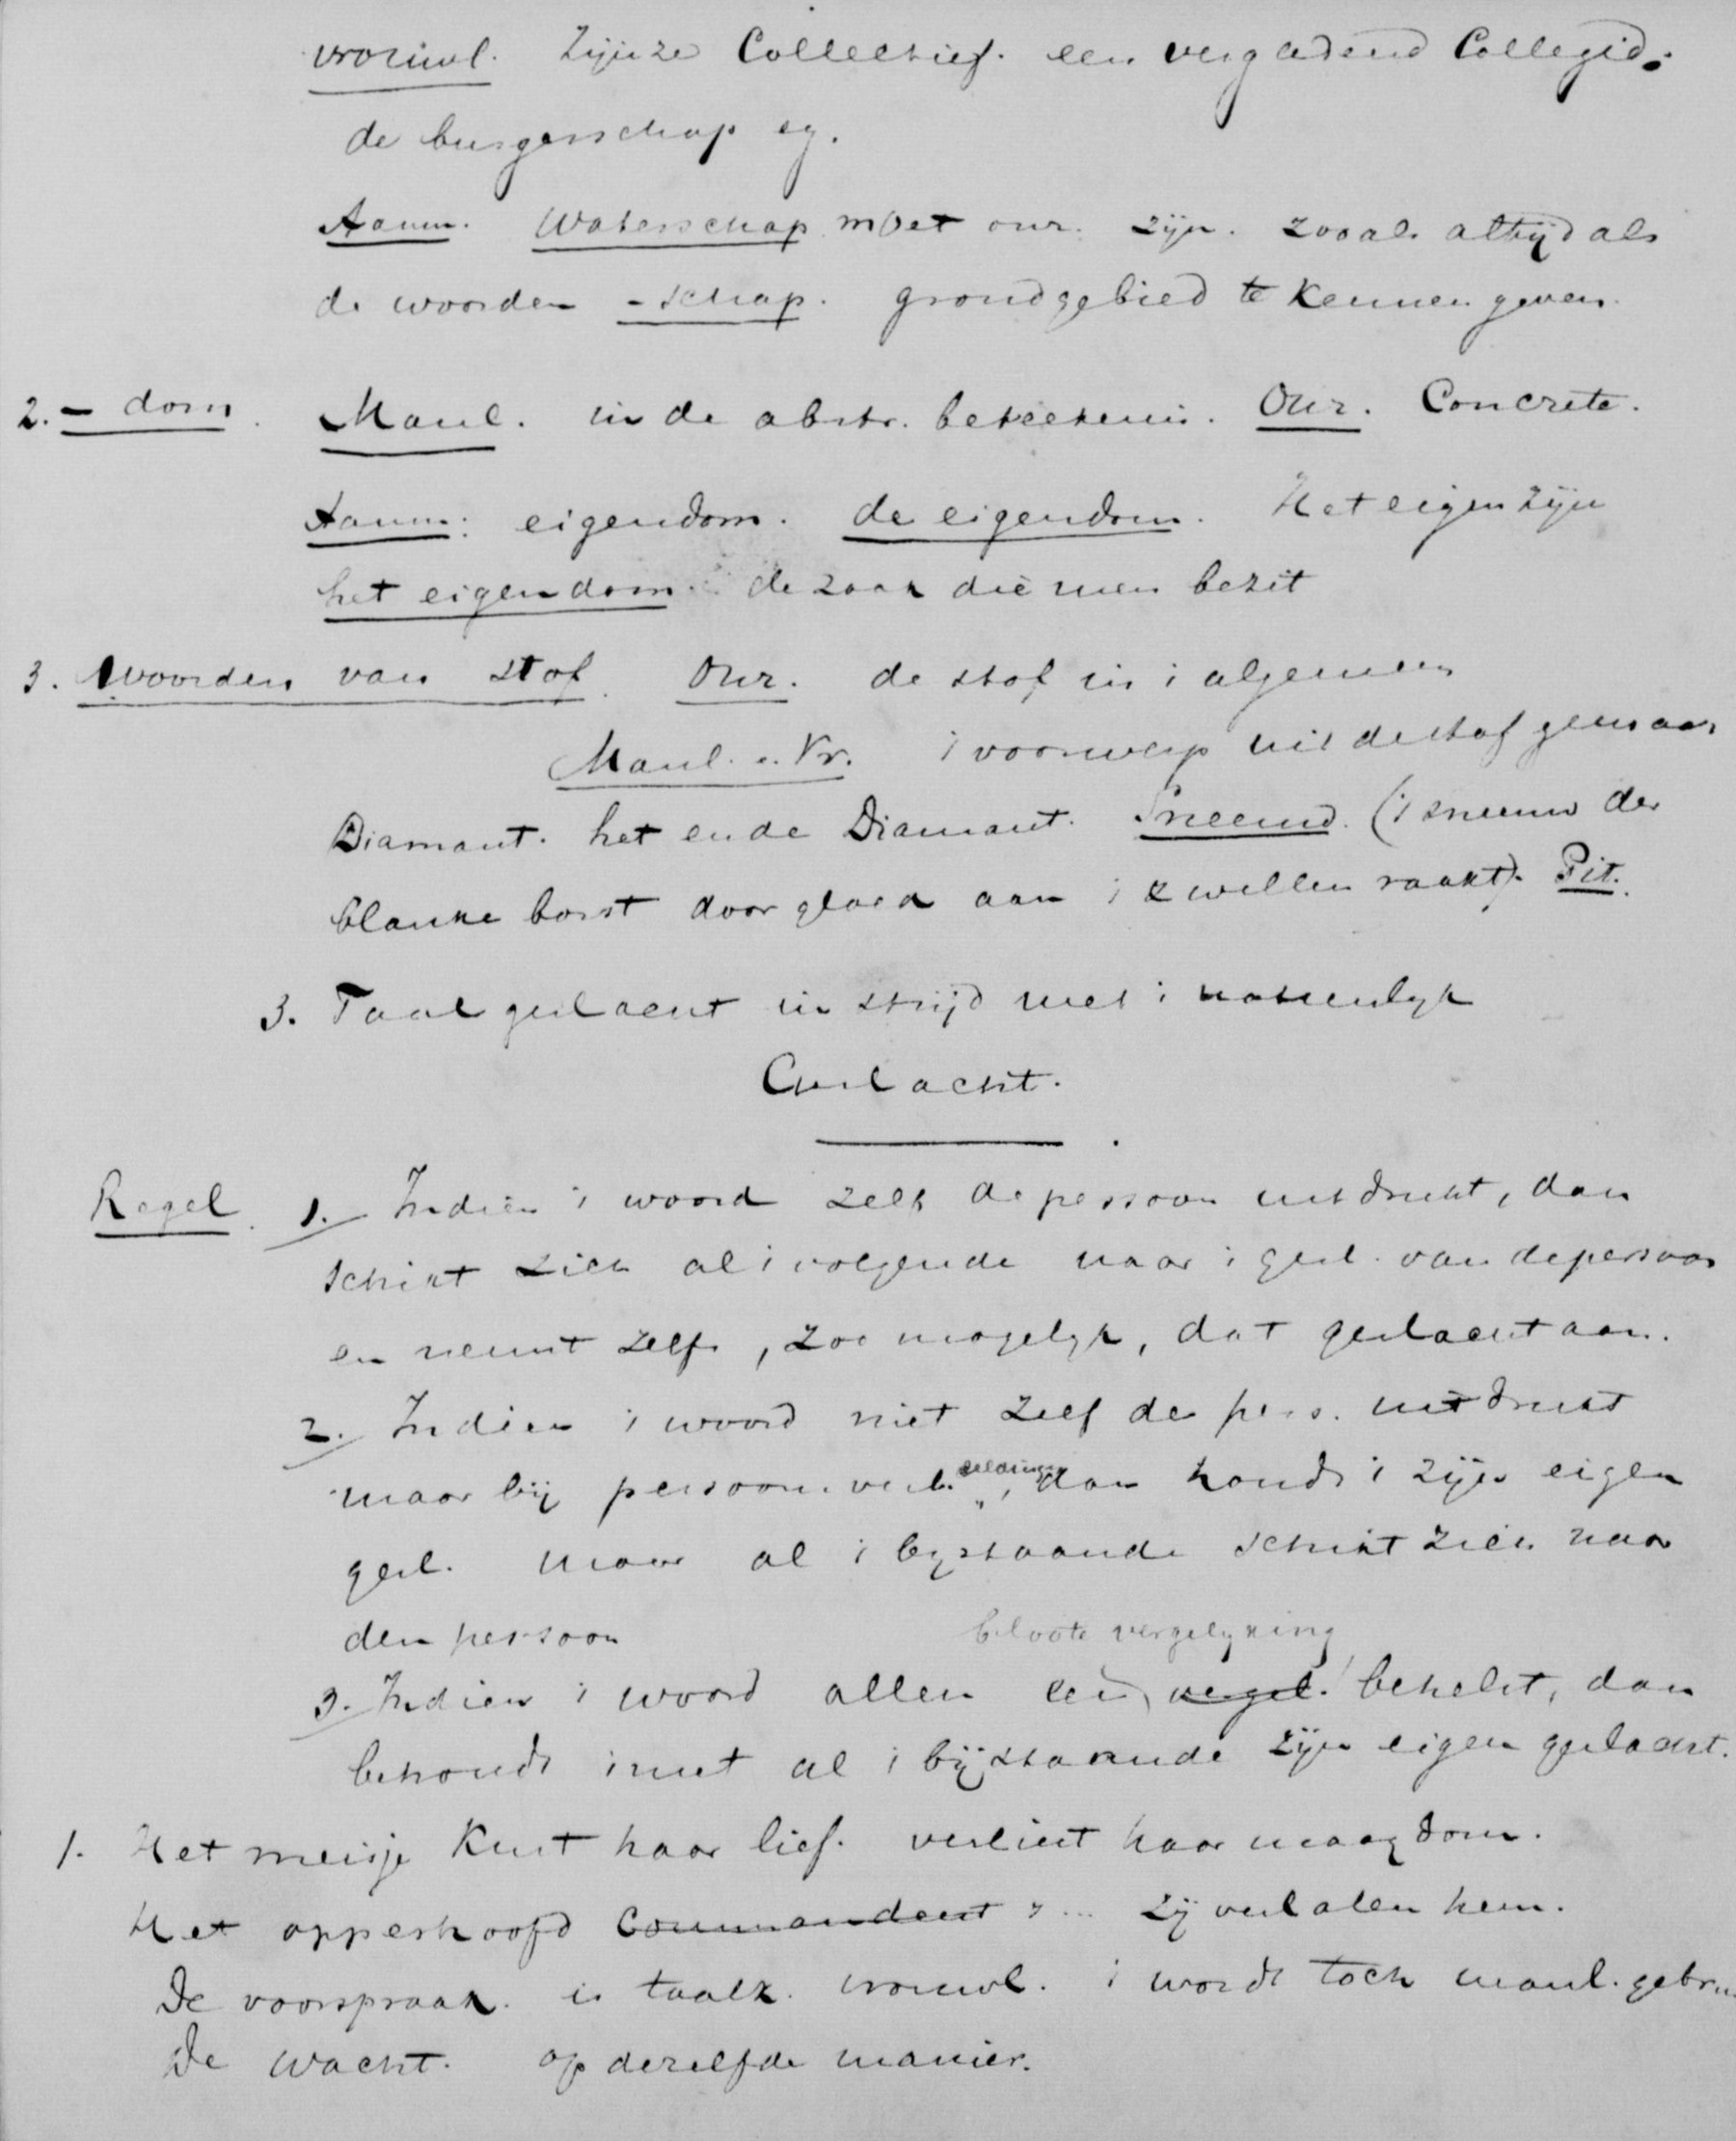 vrouwl. Zijn ze Collectief. een vergaderend Collegie.
de burgerschap eg.
Aanm. Waterschap moet onz. zijn. zooals altijd als
de woorden -schap. grondgebied te kennen geven.
2. - dom. Manl. in de abstr. beteekenis. Onz. Concrete.
Aanm: eigendom. de eigendom. Het eigen zijn
het eigendom. de zaak die men bezit
3. Woorden van stof. Onz. de stof in i algemeen
Manl. en Vr. i voorwerp uit de stof gemaak
Diamant. het en de Diamant. Sneeuw. (i sneeuw der
blanke borst door gloed aan i zwellen raakt). Pit.
3. Taal geslacht in strijd met i natuurlyk
Geslacht.
Regel. 1. Indien i woord zelf de persoon uitdrukt, dan
schikt zich al i volgende naar i gesl. van de persoon
en neemt zelfs, zoo mogelyk, dat geslacht aan.
2. Indien i woord niet zelf de pers. uitdrukt
maar bij persoonsverb. beeldingen, dan houdt i zijn eigen
gesl. maar al i bystaande schikt zich naar
den persoon
bloote vergelyking
3. Indien i woord alleen een vergel. behelst, dan
behoudt i met al i bijstaande zijn eigen geslacht.
1. Het meisje kust haar lief. verliest haar maagdom.
Het opperhoofd Commandeert ... Zij verlaten hem.
De voorspraak. is taalk. vrouwl. i wordt toch manl. gebru
De wacht. op dezelfde manier.